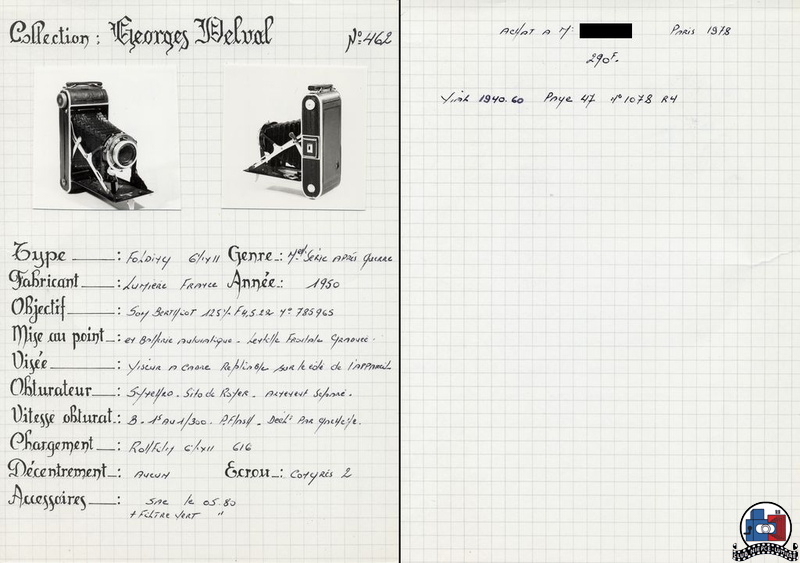 Collection : Georges Delval N° 462
Type : Folding 6½x11 Genre : Série Après Guerre
Fabricant : Lumière France Année : 1950
Objectif : Som Berthiot 125 F4,5 N° 785965
Mise au point : et automatique - Lentille Frontale
Visée : Viseur a cadre sur le côté de l'appareil
Obturateur : Sito de Royer - Armement Séparé.
Vitesse obturat. : B - 1s au 1/300 - P.Flash -
Chargement : RollFilm 6½x11 616
Décentrement : Aucun Ecrou : Congrès 2
Accessoires : Sac le 05.80
+ Filtre Vert "
Achat a Mr Paris 1978
290F.
1940.60 Page 47 N° 1078 R4